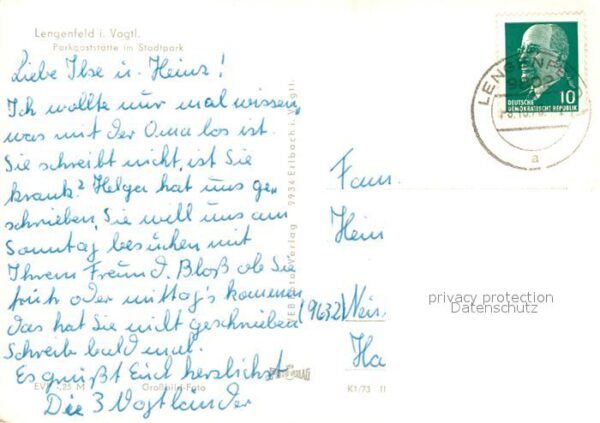 Lengenfeld i. Vogtl.
Parkgaststätte im Stadtpark
Liebe Ilse u. Heinz!
Ich wollte nur mal wissen,
was mit der Oma los ist.
Sie schreibt nicht, ist Sie
krank? Helga hat uns ge-
schrieben, Sie will uns am
Sonntag besuchen mit
Ihrem Freund. Bloß ob Sie
früh oder mittag's kommen
das hat Sie nicht geschrieben
Schreibe bald mal.
Es grüßt Euch herzlichst
Die 3 Vogtländer
EV 25 M
Großbild-Foto
Verlag 9934 Erlbach i. Vogtl.
K1/73 II
LENGENFE
DEUTSCHE
DEMOKRATISCHE REPUBLIK
10
a
Fam.
Hein
(9632)
Ha
privacy protection
Datenschutz